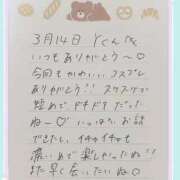 3月14日 Yくん
いつもありがとう〜♡
今回もかわいい コスプレ
ありがとう!! スケスケで
短めで ドキドキ だった
ね〜♡ いっぱいお話
できたし イチャイチャも
濃いめで楽しかったね!!
また早く会いたいね♡